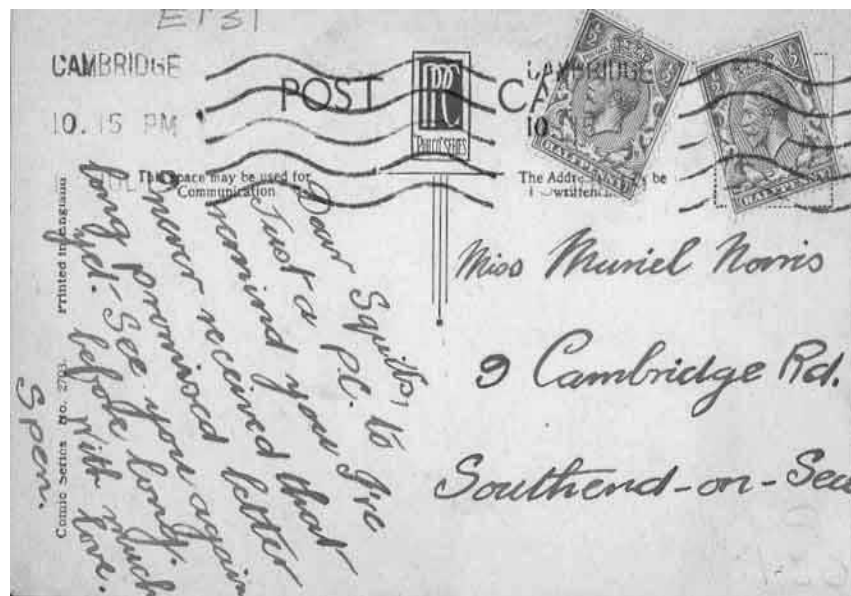 E131
CAMBRIDGE
10. 15 PM
POST CA
PC
PHILCO SERIES
CAMBRIDGE
10. 15
This space may be used for
Communication
The Address be
written
Printed in England
Comic Series No. 2703.
Dear Squitts,
Just a P.C. to
remind you I've
never received that
long promised letter
yet. See you again
before long.
With much
love.
Spen.
Miss Muriel Norris
9 Cambridge Rd.
Southend-on-Sea